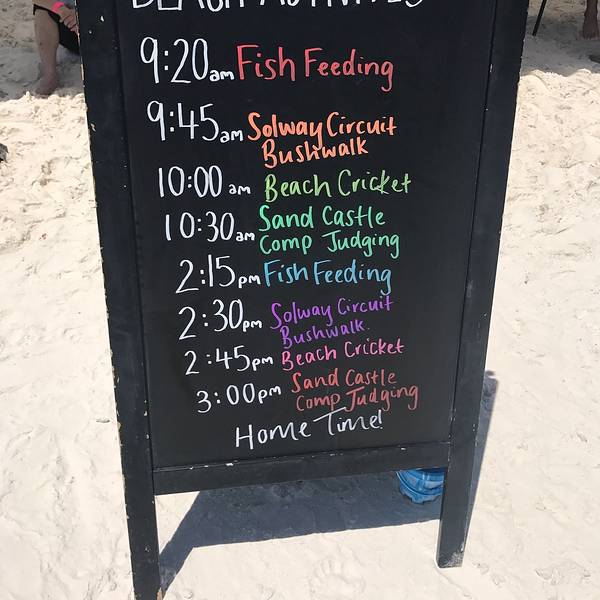 BEACH ACTIVITIES
9:20am Fish Feeding
9:45am Solway Circuit
Bushwalk
10:00am Beach Cricket
10:30am Sand Castle
Comp Judging
2:15pm Fish Feeding
2:30pm Solway Circuit
Bushwalk.
2:45pm Beach Cricket
3:00pm Sand Castle
Comp Judging
Home Time!